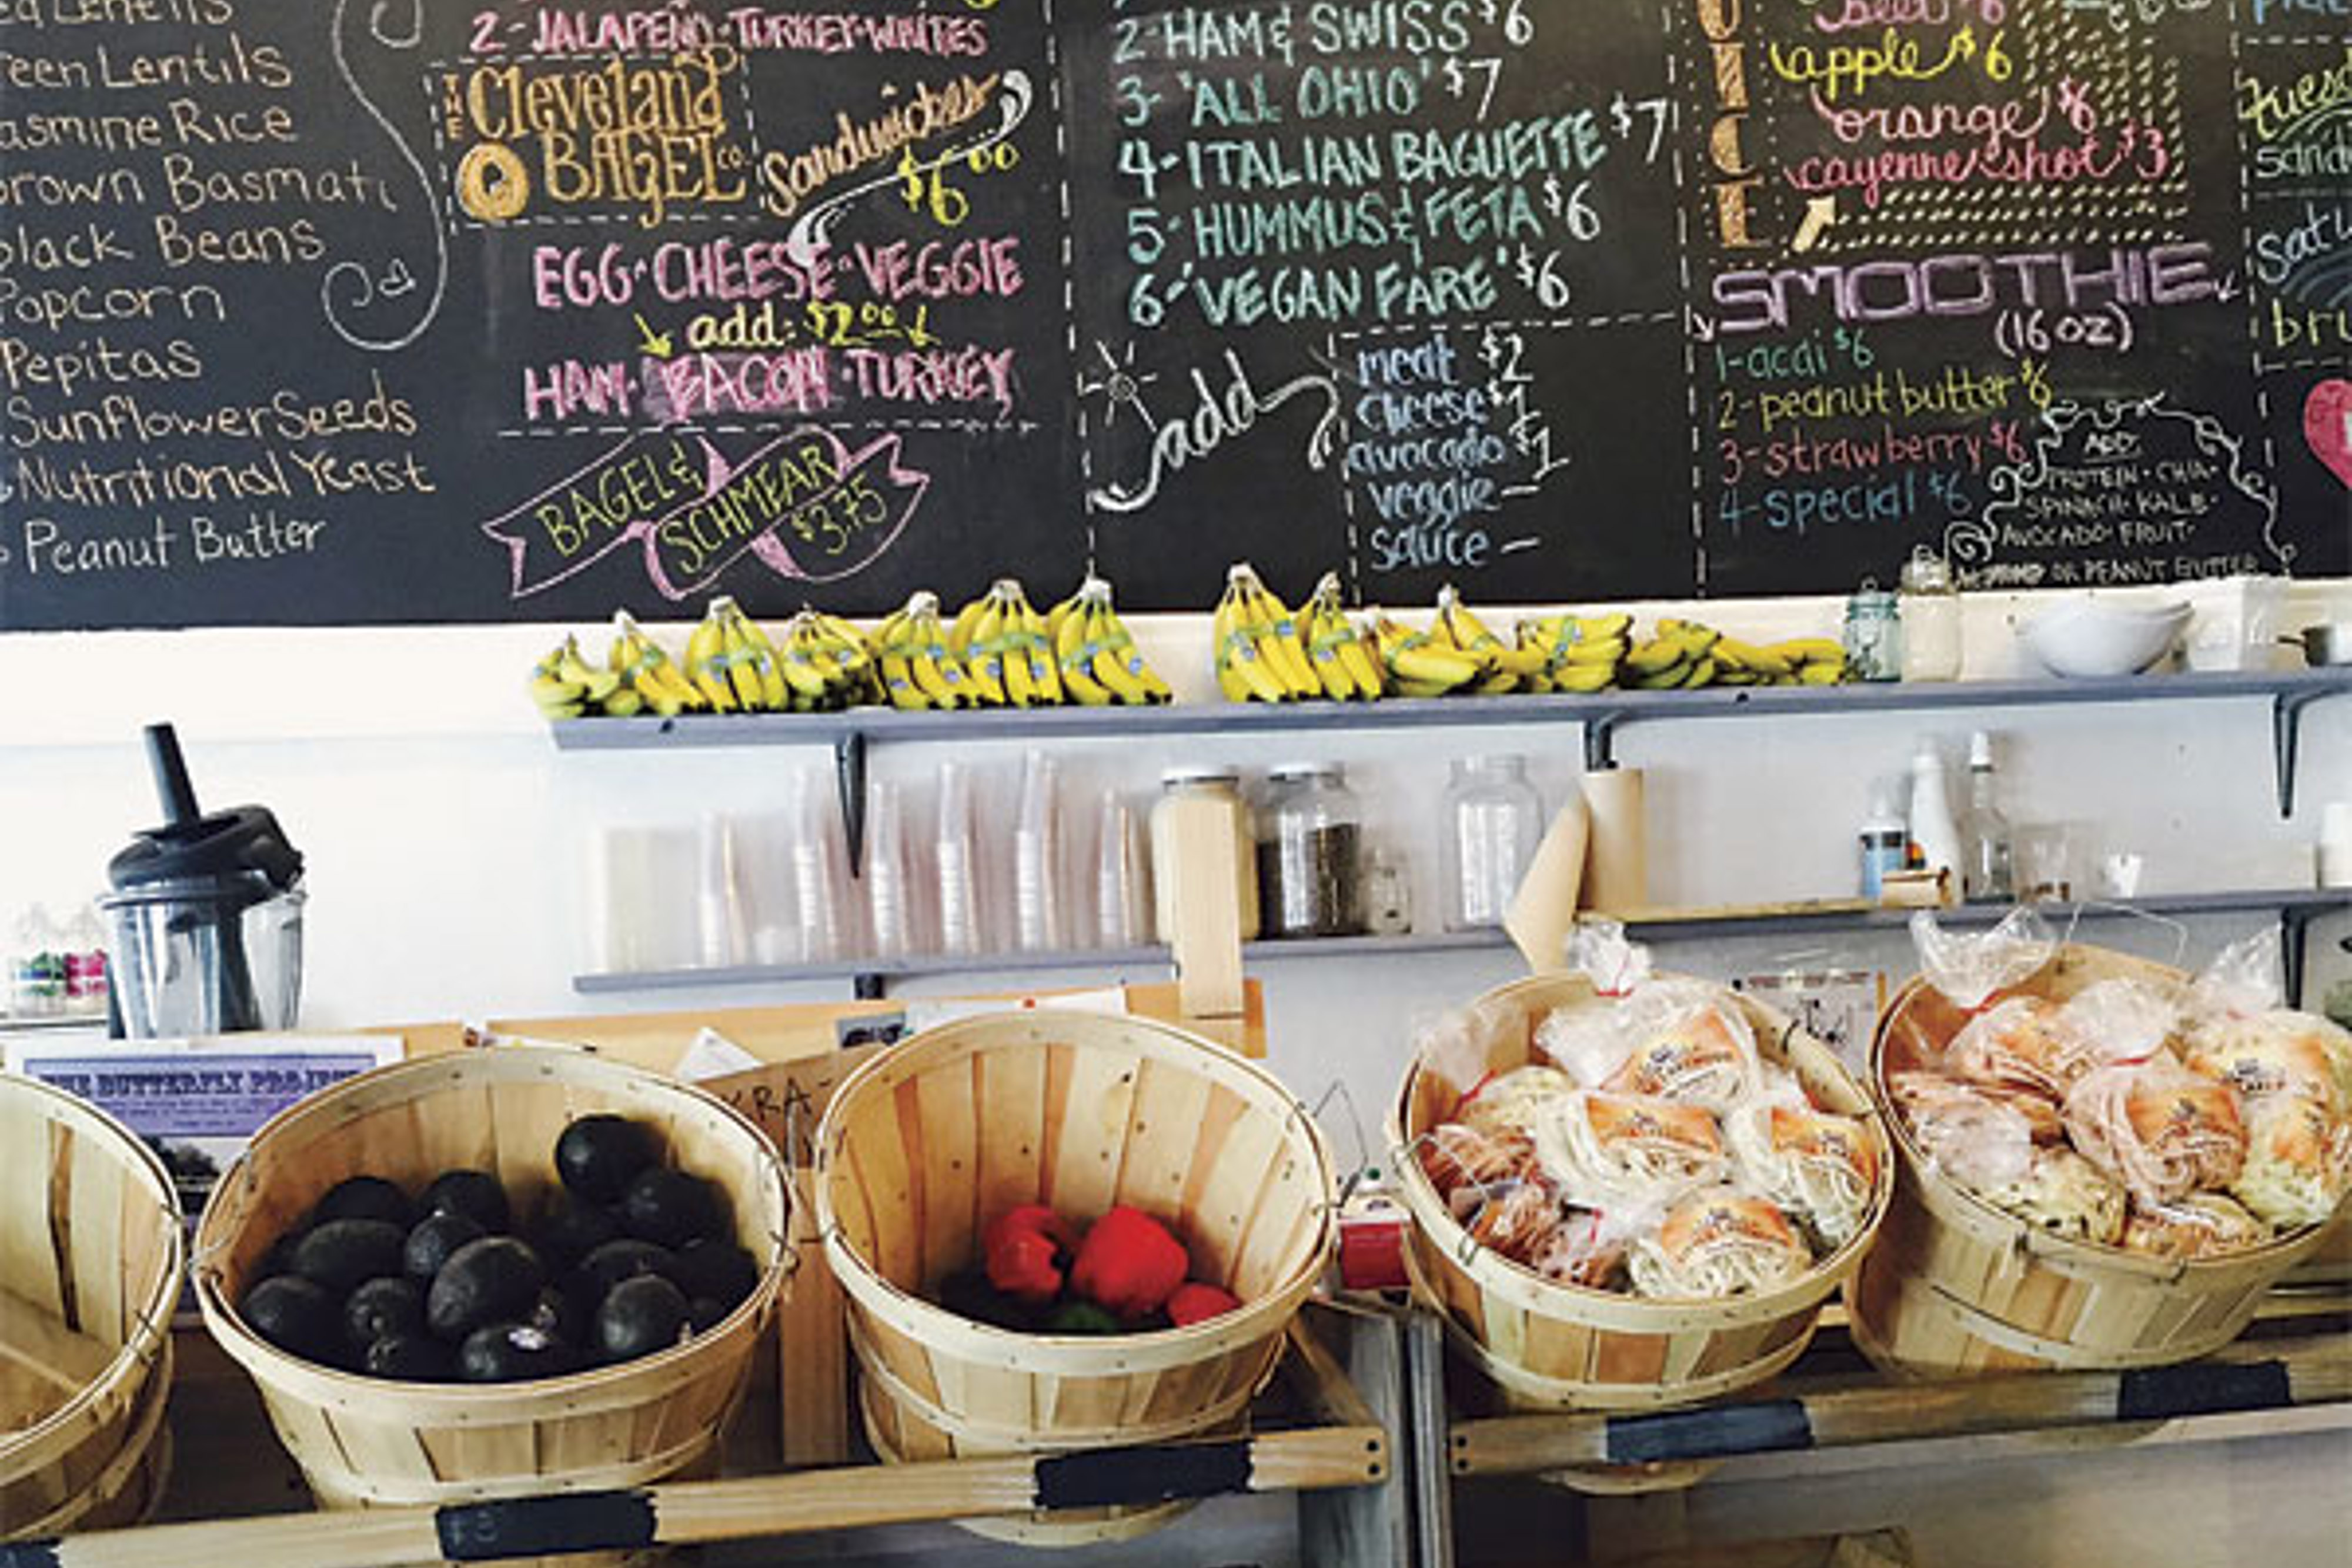 Lentils
Green Lentils
Jasmine Rice
Brown Basmati
Black Beans
Popcorn
Pepitas
Sunflower Seeds
Nutritional Yeast
Peanut Butter
2-JALAPEÑO·TURKEY·WHITES
THE
Cleveland
BAGEL CO.
Sandwiches
$6.00
EGG·CHEESE·VEGGIE
add: $2.00
HAM·BACON·TURKEY
BAGEL &
SCHMEAR
$3.75
2-HAM & SWISS $6
3-'ALL OHIO' $7
4-ITALIAN BAGUETTE $7
5-HUMMUS & FETA $6
6-'VEGAN FARE' $6
add
meat $2
cheese $1
avocado $1
veggie —
sauce —
JUICE
beet $6
apple $6
orange $6
cayenne shot $3
SMOOTHIE
(16 oz)
1-acai $6
2-peanut butter $6
3-strawberry $6
4-special $6
ADD:
PROTEIN·CHIA·
SPINACH·KALE·
AVOCADO·FRUIT·
ALMOND OR PEANUT BUTTER
THE BUTTERFLY PROJECT